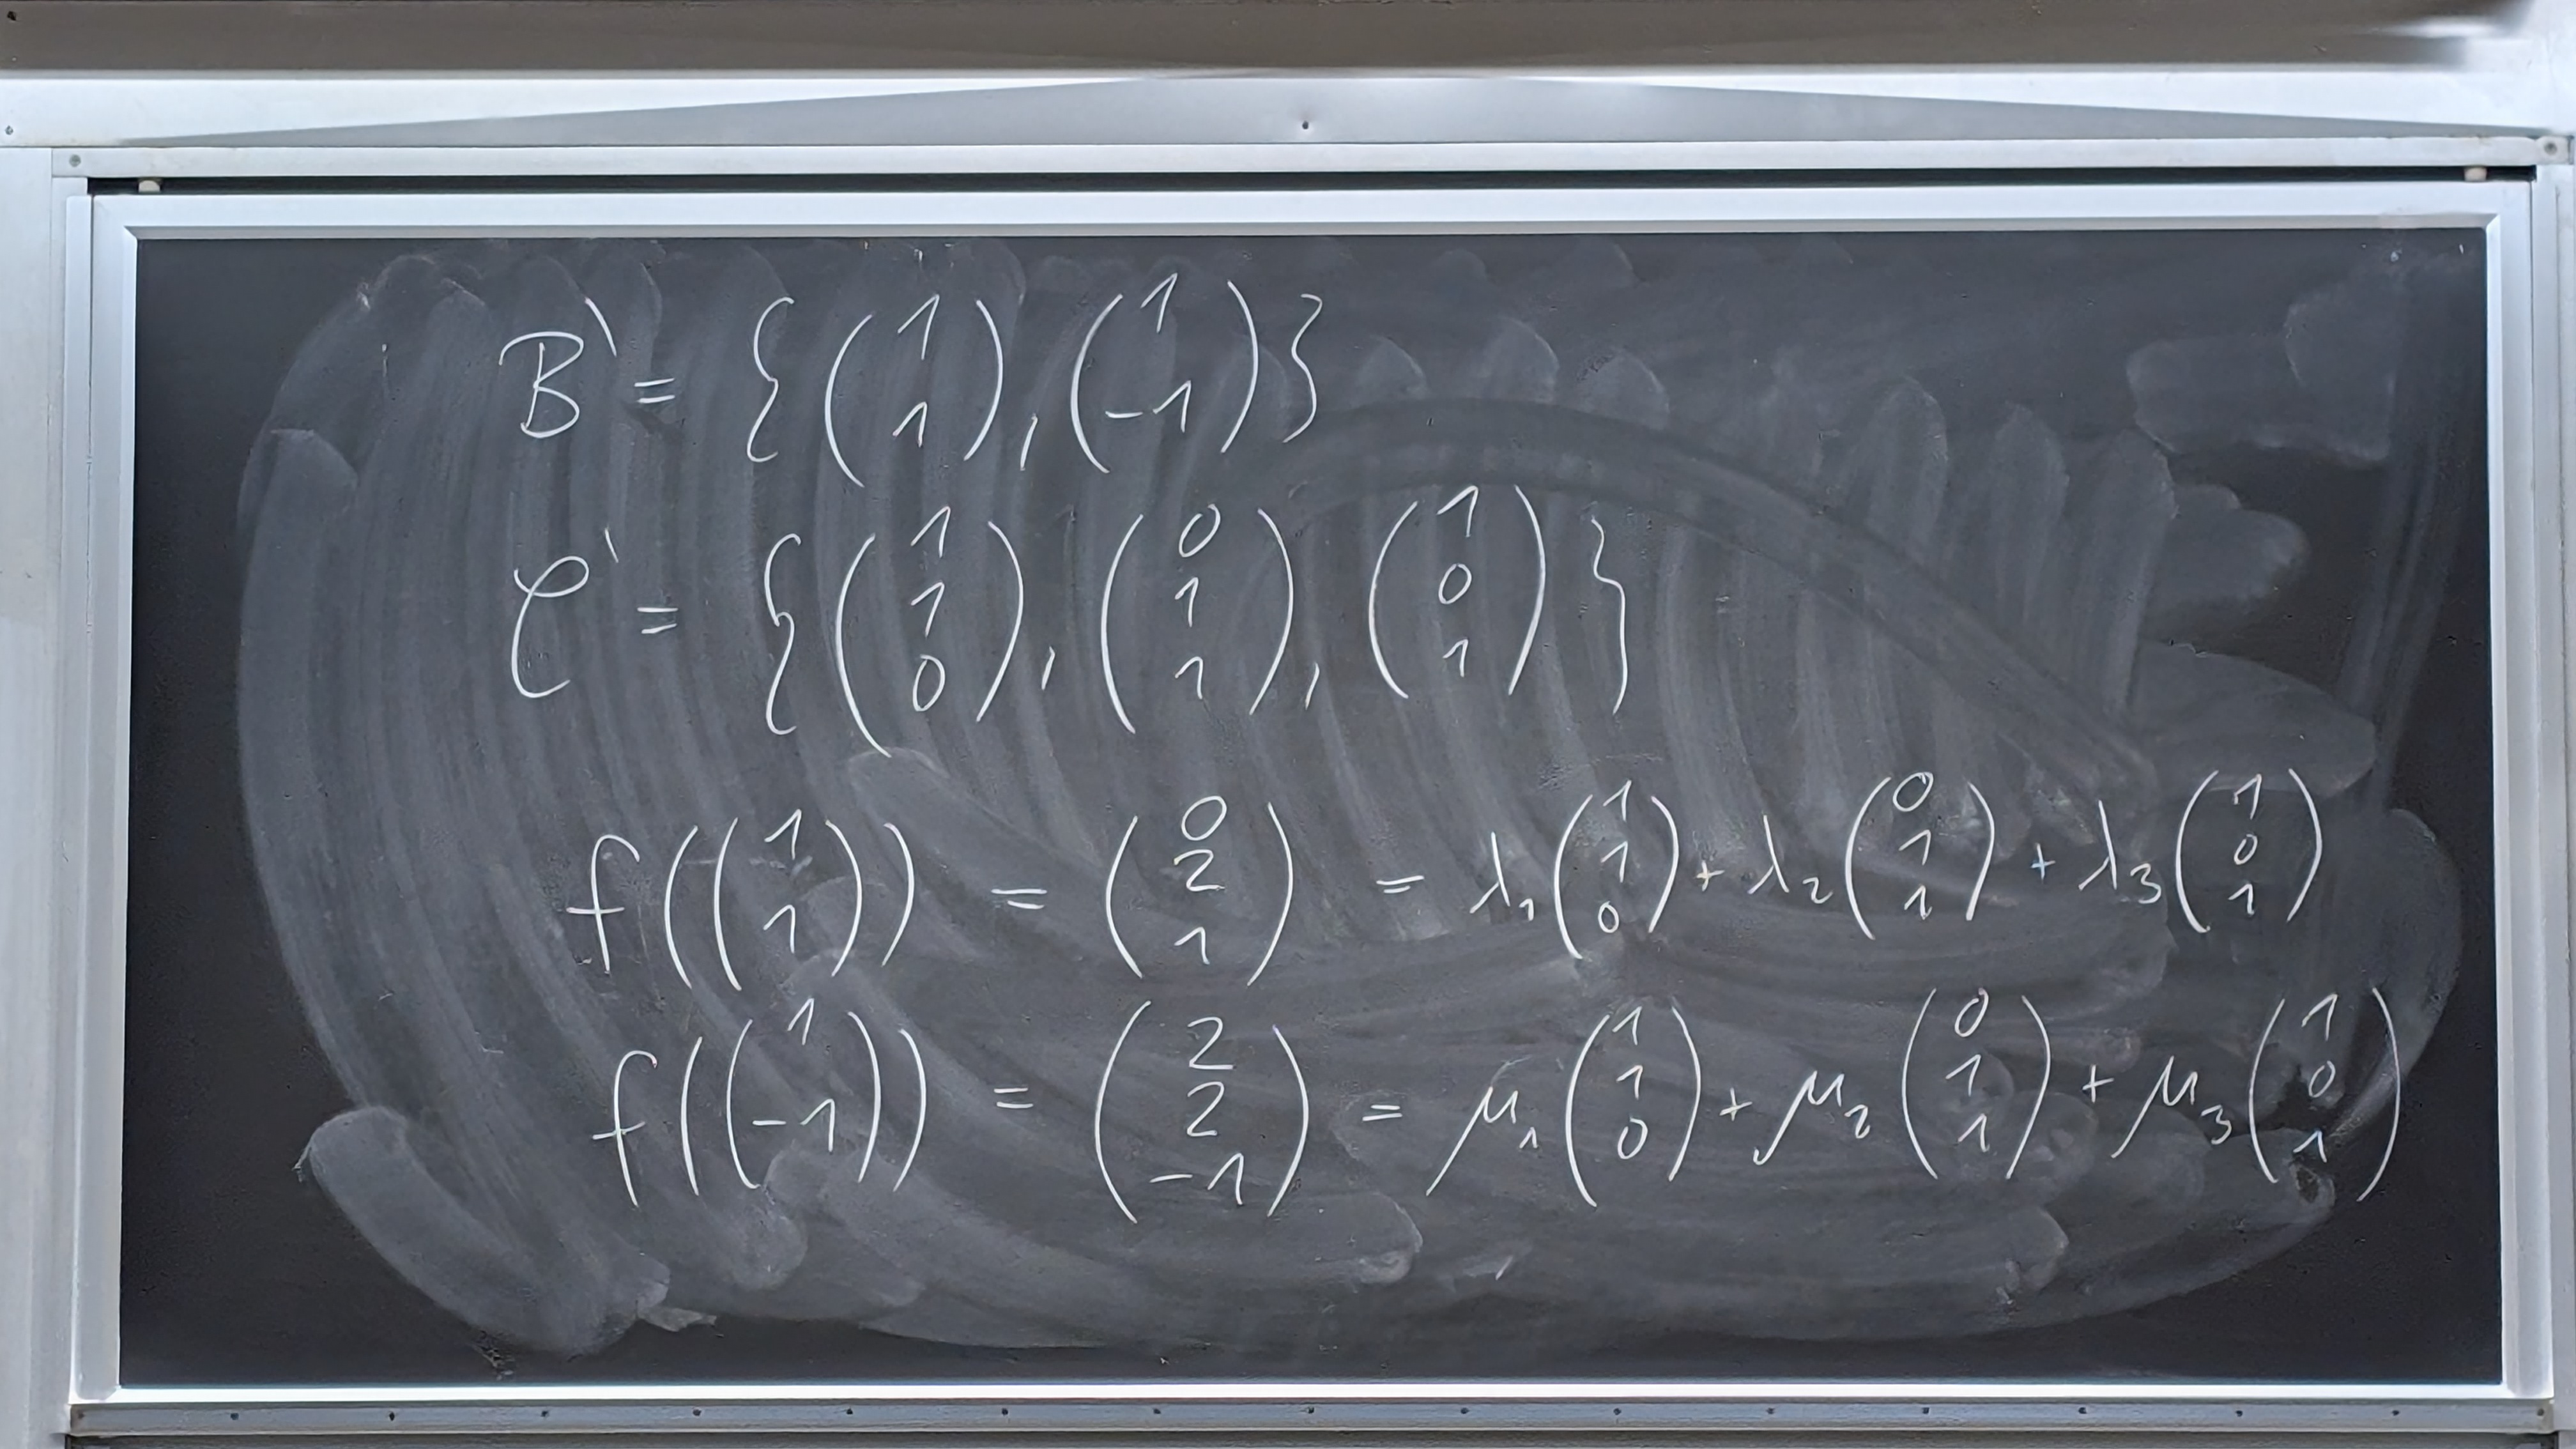 B' = { (1 1), (1 -1) }
C' = { (1 1 0), (0 1 1), (1 0 1) }
f((1 1)) = (0 2 1) = λ₁(1 1 0) + λ₂(0 1 1) + λ₃(1 0 1)
f((1 -1)) = (2 2 -1) = μ₁(1 1 0) + μ₂(0 1 1) + μ₃(1 0 1)